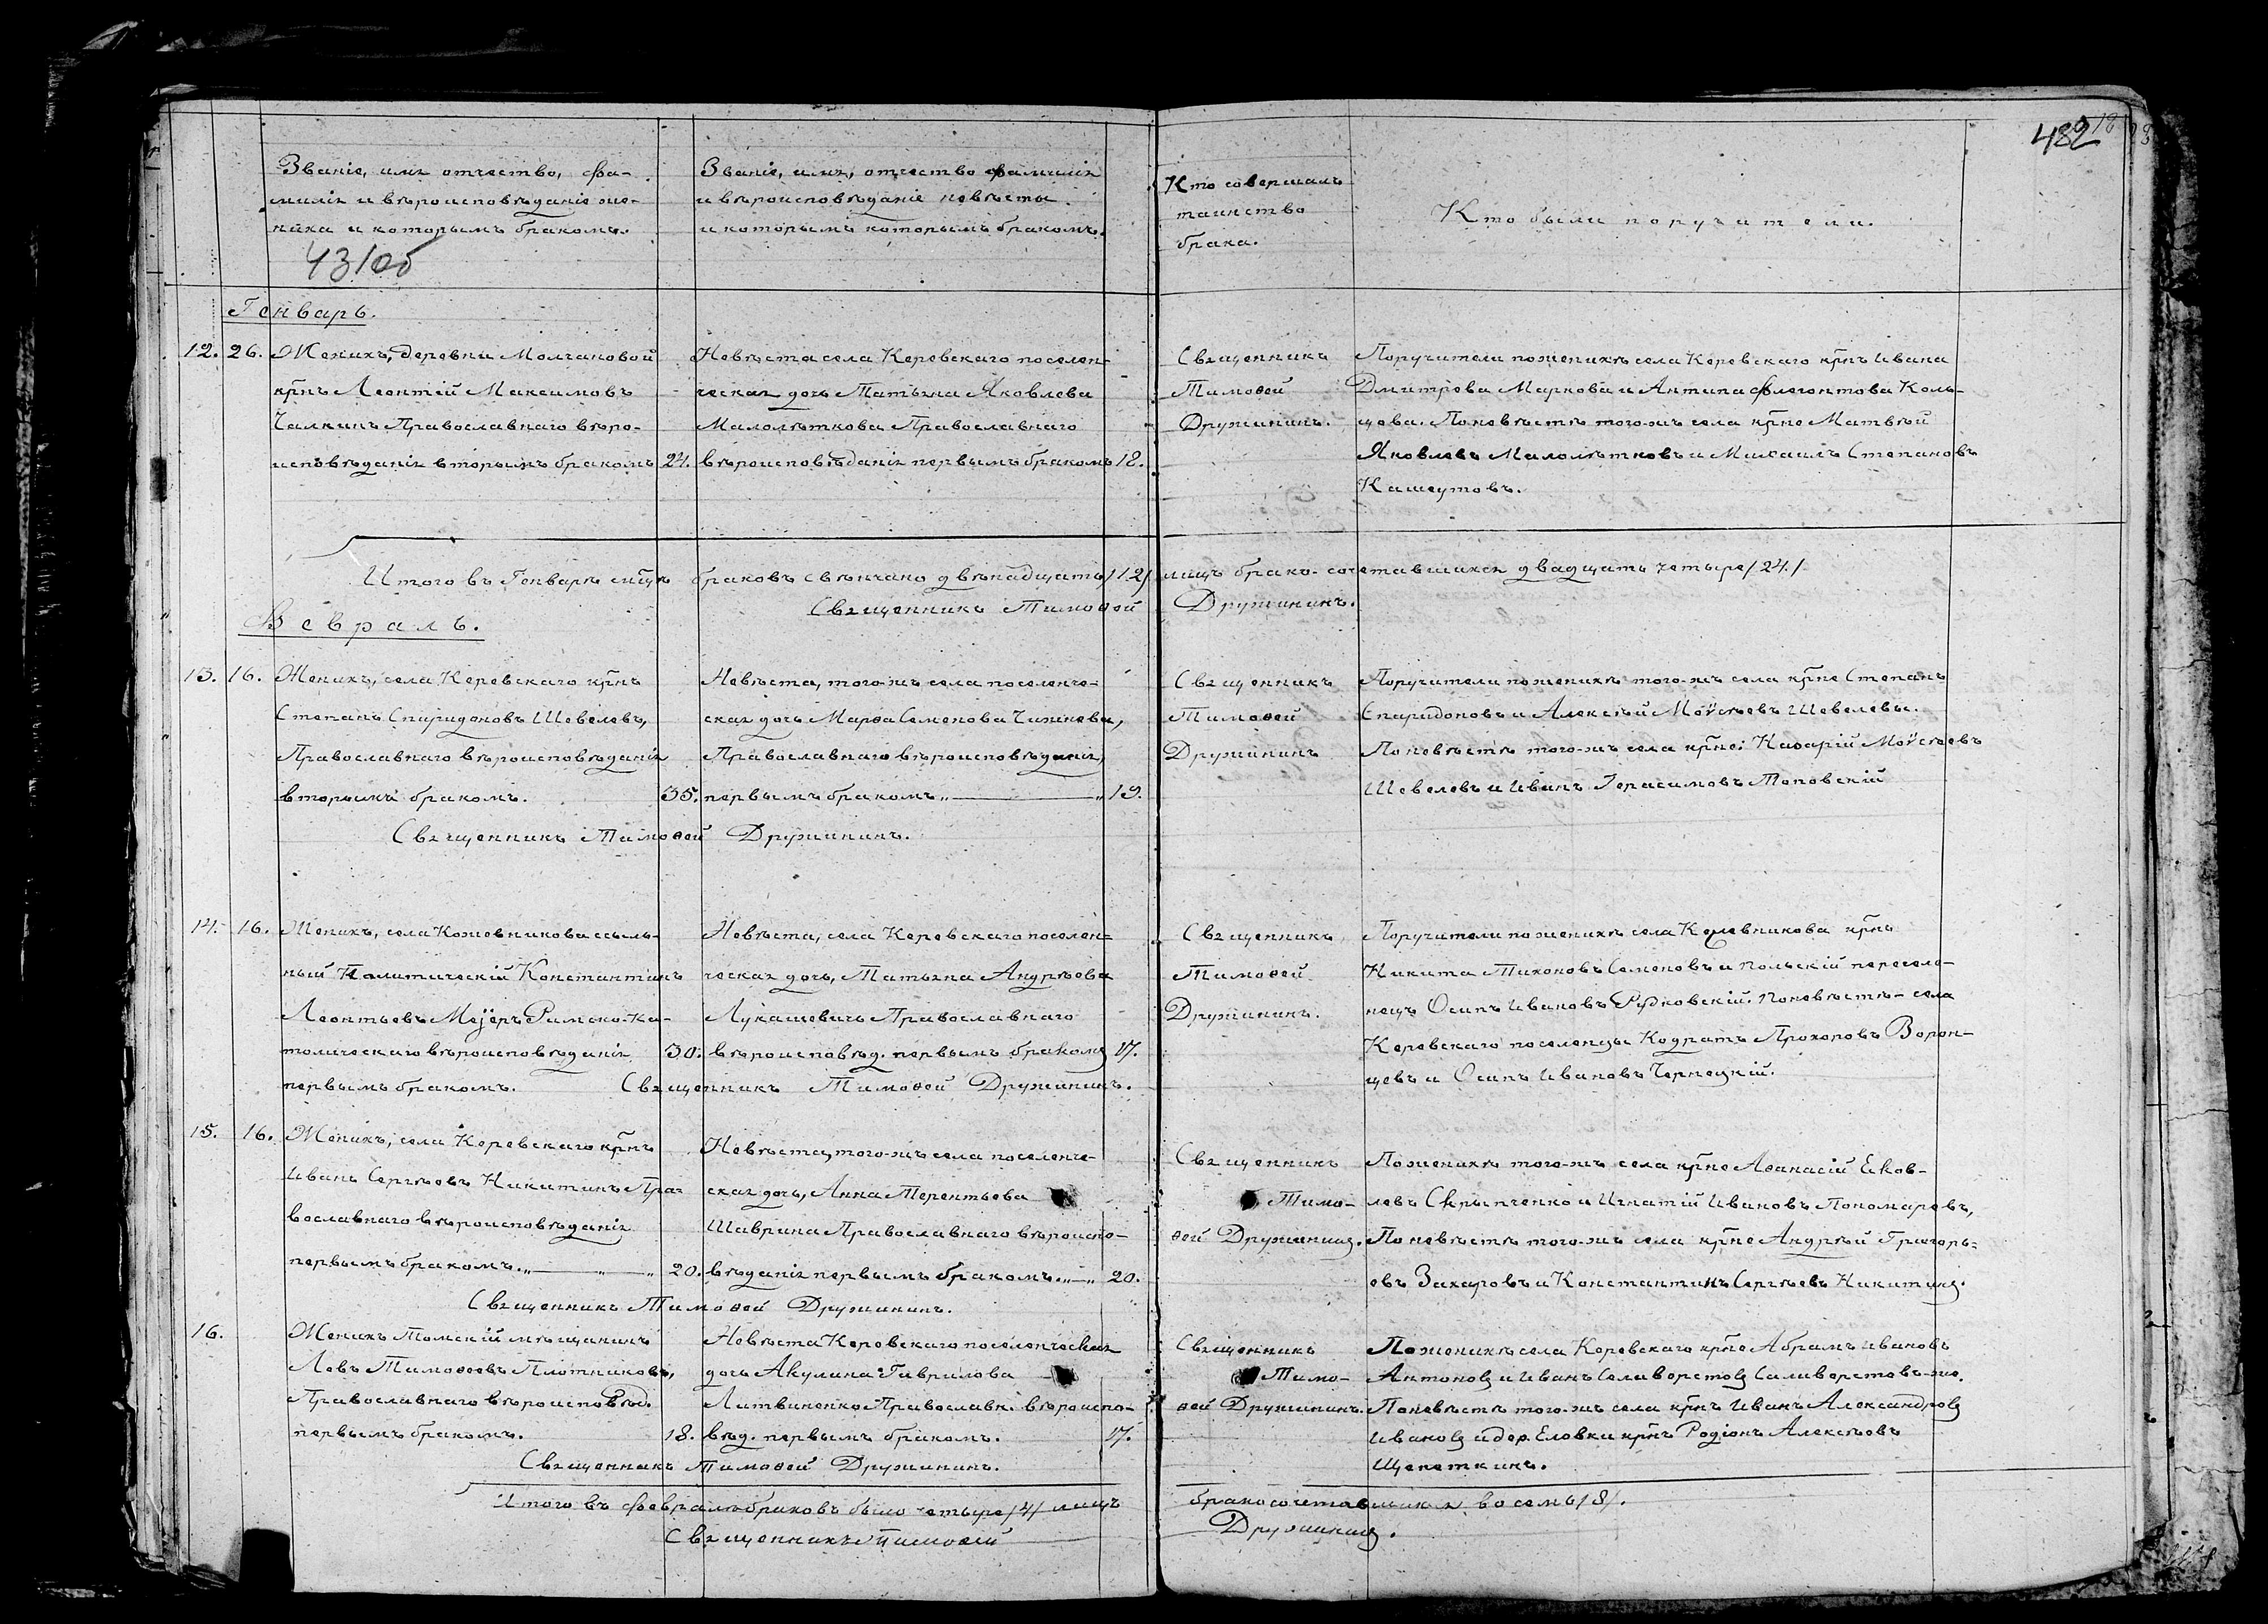 482
Званіе, имя отчество, фа-
милія и вѣроисповѣданіе же-
ниха и которымъ бракомъ.
43/об
Званіе, имя, отчество фамилія
и вѣроисповѣданіе невѣсты
и которымъ которымъ бракомъ.
Кто совершалъ
таинство
брака.
Кто были поручители.
Генварь.
12. 26. Женихъ, деревни Молчановой
крнъ Леонтій Максимовъ
Чалкинъ Православнаго вѣро-
исповѣданія вторымъ бракомъ 24.
Невѣста села Керевскаго поселен-
ческая дочь Татьяна Яковлева
Малолѣткова Православнаго
вѣроисповѣданія первымъ бракомъ 18.
Священникъ
Тимоѳей
Дружининъ.
Поручители по женихѣ села Керевскаго крнъ Ивана
Дмитрева Маркова и Антипа Флегонтова Коль-
цова. По невѣстѣ того-жъ села крне Матвѣй
Яковлевъ Малолѣтковъ и Михаилъ Степановъ
Камеутовъ.
Итого въ Генварѣ мцѣ браковъ свѣнчано двѣнадцать /12/ лицъ брако-сочетавшихся двадцать четыре /24./
Священникъ Тимоѳей Дружининъ.
Февраль.
13. 16. Женихъ, села Керевскаго крнъ
Степанъ Спиридоновъ Шевелевъ,
Православнаго вѣроисповѣданія
вторымъ бракомъ. 35.
Невѣста, того-жъ села поселенче-
ская дочь Марѳа Семенова Чижнева,
Православнаго вѣроисповѣданія,
первымъ бракомъ „ — „ 19.
Священникъ
Тимоѳей
Дружининъ
Поручители по женихѣ того-жъ села крне Степанъ
Спиридоновъ и Алексѣй Моѵсѣевъ Шевелевы.
По невѣстѣ того-жъ села крне: Назарій Моѵсѣевъ
Шевелевъ и Иванъ Герасимовъ Топовскій
Священникъ Тимоѳей Дружининъ.
14. 16. Женихъ, села Кожевникова ссыль-
ный Политическій Константинъ
Леонтьевъ Мейеръ Римско-Ка-
толическаго вѣроисповѣданія 30.
первымъ бракомъ.
Невѣста, села Керевскаго поселен-
ческая дочь, Татьяна Андрѣева
Лукашевичъ Православнаго
вѣроисповѣд. первымъ бракомъ 17.
Священникъ Тимоѳей Дружининъ.
Священникъ
Тимоѳей
Дружининъ.
Поручители по женихѣ села Кожевникова крнъ
Никита Тихоновъ Семеновъ и польскій пересел-
нецъ Осипъ Ивановъ Рудковскій. По невѣстѣ - села
Керевскаго поселенцы Кодратъ Прохоровъ Ворон-
цевъ и Осипъ Ивановъ Чернецкій.
15. 16. Женихъ, села Керевскаго крнъ
Иванъ Сергѣевъ Никитинъ Пра-
вославнаго вѣроисповѣданія
первымъ бракомъ. „ — „ — „ 20.
Невѣста, того-жъ села поселенче-
ская дочь, Анна Терентьева
Шаврина Православнаго вѣроиспо-
вѣданія первымъ бракомъ. „ — „ 20.
Священникъ
Тимо-
ѳей Дружининъ.
По женихѣ того-жъ села крне Аѳанасій Еков-
левъ Скрыпченко и Игнатій Ивановъ Пономаревъ,
По невѣстѣ того-жъ села крне Андрѣй Григорь-
евъ Захаровъ и Константинъ Сергѣевъ Никитинъ.
Священникъ Тимоѳей Дружининъ.
16. Женихъ Томскій мѣщанинъ
Левъ Тимоѳеевъ Плотниковъ,
Православнаго вѣроисповѣд.
первымъ бракомъ. 18.
Невѣста Керевскаго поселенческая
дочь Акулина Гаврилова
Литвиненко Православн. вѣроиспо-
вѣд. первымъ бракомъ. 17.
Священникъ
Тимо-
ѳей Дружининъ.
По женихѣ села Керевскаго крне Абрамъ Ивановъ
Антоновъ и Иванъ Селиверстовъ Саливерстовъ-же.
По невѣстѣ того-жъ села крнъ Иванъ Александровъ
Ивановъ и дер. Еловки крнъ Родіонъ Алексѣевъ
Щепеткинъ.
Священникъ Тимоѳей Дружининъ.
Итого въ Февралѣ браковъ было четыре /4/ лицъ бракосочетавшихся восемь /8/.
Священникъ Тимоѳей Дружининъ.